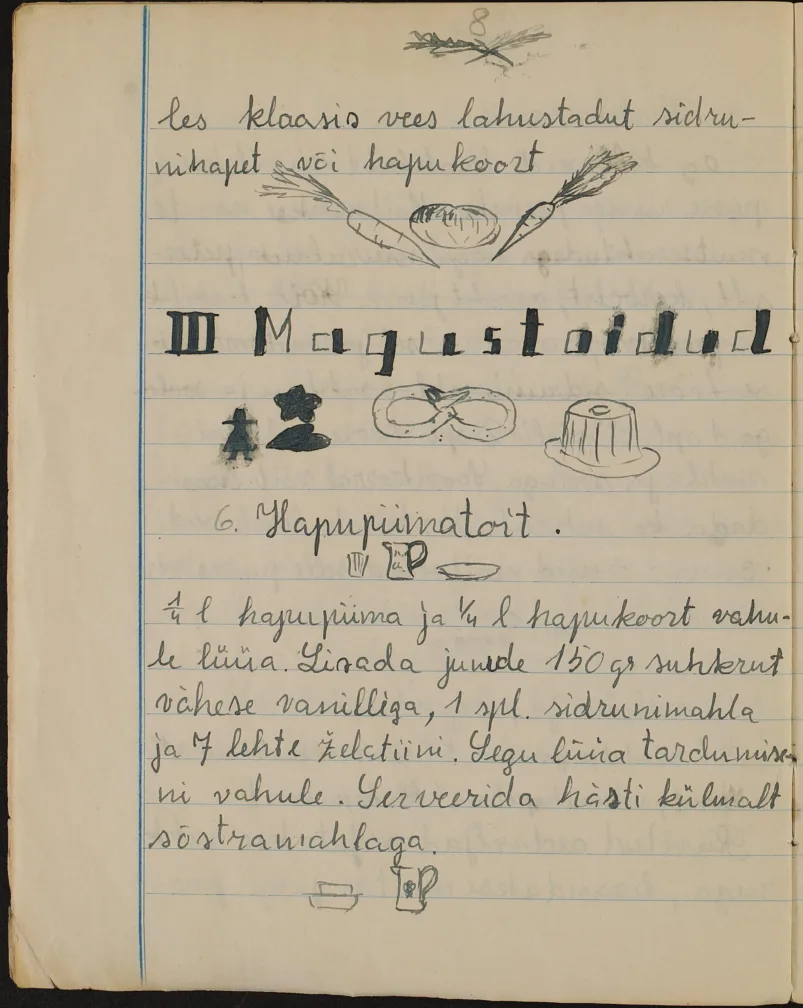 8
les klaasis vees lahustadut sidru-
nihapet või hapukoort
III Magustoidud
6. Hapupiimatoit.
1/4 l hapupiima ja 1/4 l hapukoort vahu-
le lüüa. Lisada juurde 150 gr suhkrut
vähese vanilliga, 1 spl. sidrunimahla
ja 7 lehte želatiini. Segu lüüa tardumise-
ni vahule. Serveerida hästi külmalt
sõstramahlaga.